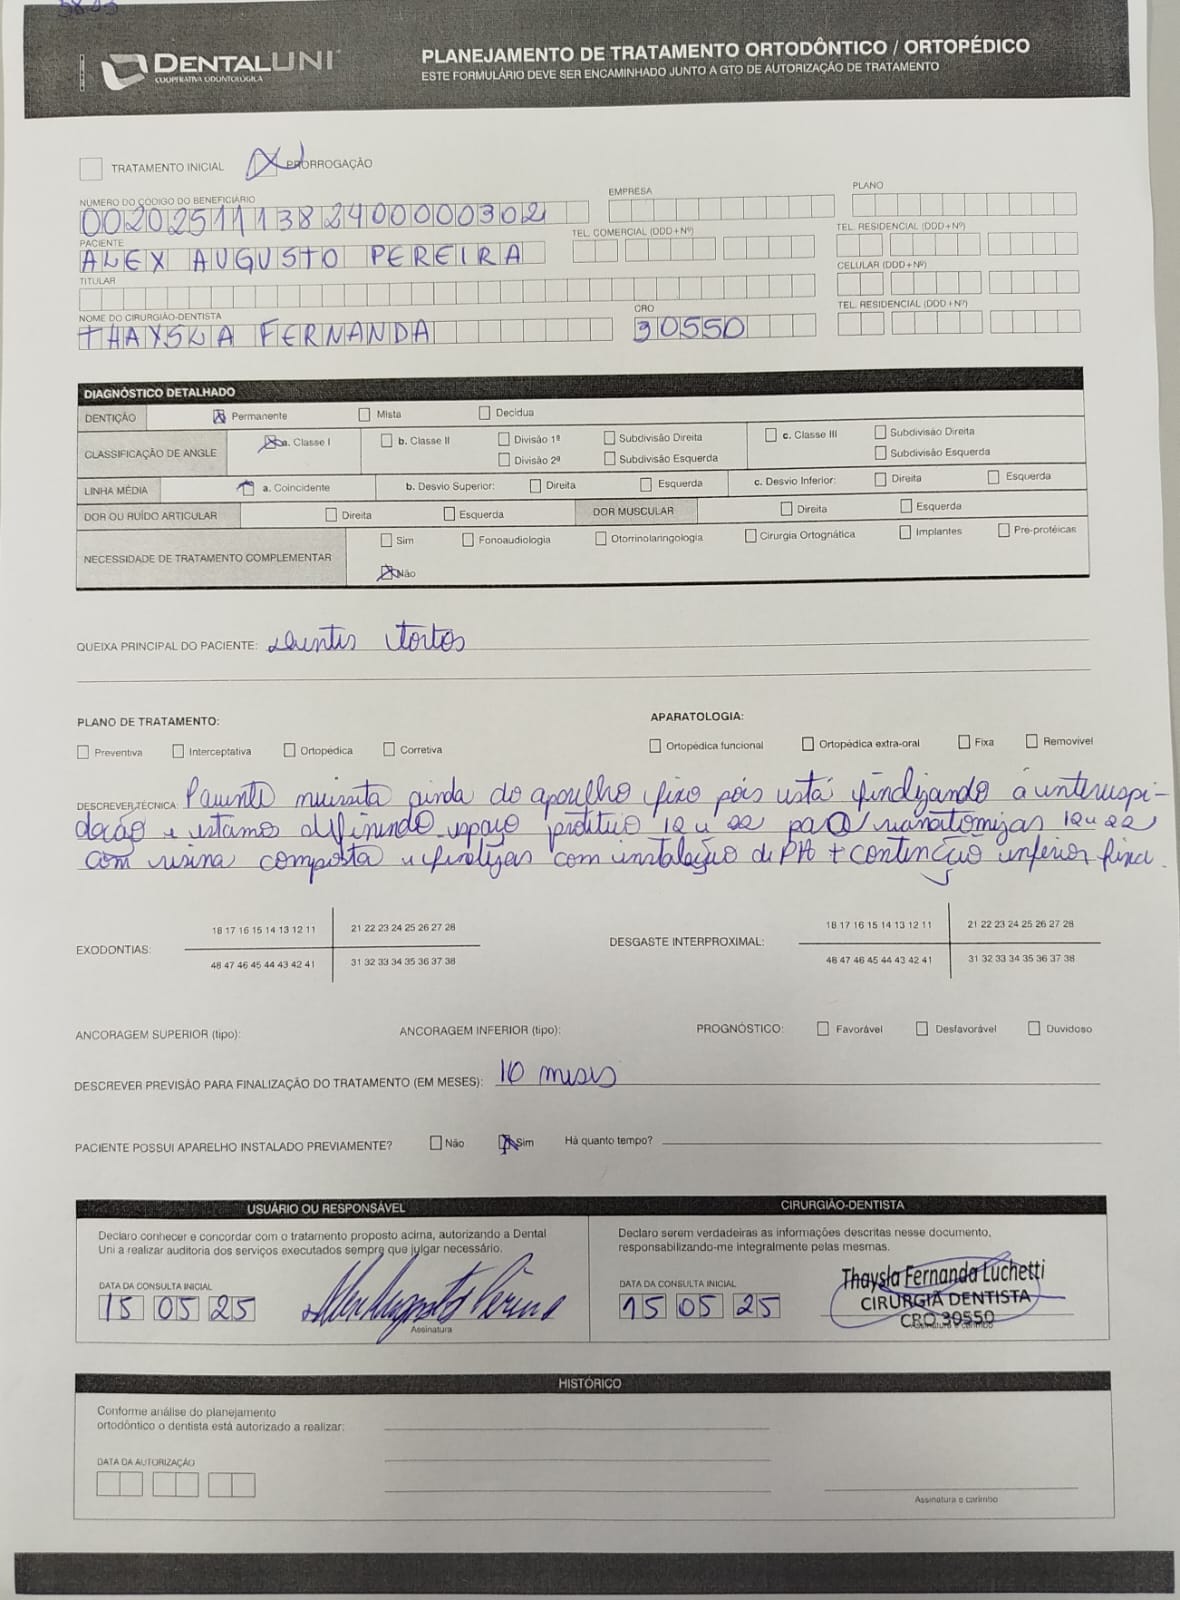 DENTALUNI
COOPERATIVA ODONTOLÓGICA
PLANEJAMENTO DE TRATAMENTO ORTODÔNTICO / ORTOPÉDICO
ESTE FORMULÁRIO DEVE SER ENCAMINHADO JUNTO A GTO DE AUTORIZAÇÃO DE TRATAMENTO
TRATAMENTO INICIAL PRORROGAÇÃO
NÚMERO DO CÓDIGO DO BENEFICIÁRIO EMPRESA PLANO
00202511138240000302
PACIENTE TEL. COMERCIAL (DDD+Nº) TEL. RESIDENCIAL (DDD+Nº)
ALEX AUGUSTO PEREIRA
TITULAR CELULAR (DDD+Nº)
NOME DO CIRURGIÃO-DENTISTA CRO TEL. RESIDENCIAL (DDD+Nº)
THAYSLA FERNANDA 30550
DIAGNÓSTICO DETALHADO
DENTIÇÃO Permanente Mista Decídua
CLASSIFICAÇÃO DE ANGLE a. Classe I b. Classe II Divisão 1ª Subdivisão Direita c. Classe III Subdivisão Direita
Divisão 2ª Subdivisão Esquerda Subdivisão Esquerda
LINHA MÉDIA a. Coincidente b. Desvio Superior: Direita Esquerda c. Desvio Inferior: Direita Esquerda
DOR OU RUÍDO ARTICULAR Direita Esquerda DOR MUSCULAR Direita Esquerda
NECESSIDADE DE TRATAMENTO COMPLEMENTAR Sim Fonoaudiologia Otorrinolaringologia Cirurgia Ortognática Implantes Pré-protéicas
Não
QUEIXA PRINCIPAL DO PACIENTE: dentes tortos
PLANO DE TRATAMENTO: APARATOLOGIA:
Preventiva Interceptativa Ortopédica Corretiva Ortopédica funcional Ortopédica extra-oral Fixa Removível
DESCREVER TÉCNICA: Paciente necessita ainda do aparelho fixo pois está findizando a intercuspi-
dação e estamos definindo espaço protético 12 e 22 para reanatomizar 12 e 22
com resina composta e finalizar com instalação de PA + contenção inferior fixa.
EXODONTIAS: 18 17 16 15 14 13 12 11 21 22 23 24 25 26 27 28 DESGASTE INTERPROXIMAL: 18 17 16 15 14 13 12 11 21 22 23 24 25 26 27 28
48 47 46 45 44 43 42 41 31 32 33 34 35 36 37 38 48 47 46 45 44 43 42 41 31 32 33 34 35 36 37 38
ANCORAGEM SUPERIOR (tipo): ANCORAGEM INFERIOR (tipo): PROGNÓSTICO: Favorável Desfavorável Duvidoso
DESCREVER PREVISÃO PARA FINALIZAÇÃO DO TRATAMENTO (EM MESES): 10 meses
PACIENTE POSSUI APARELHO INSTALADO PREVIAMENTE? Não Sim Há quanto tempo?
USUÁRIO OU RESPONSÁVEL CIRURGIÃO-DENTISTA
Declaro conhecer e concordar com o tratamento proposto acima, autorizando a Dental Declaro serem verdadeiras as informações descritas nesse documento,
Uni a realizar auditoria dos serviços executados sempre que julgar necessário. responsabilizando-me integralmente pelas mesmas.
DATA DA CONSULTA INICIAL DATA DA CONSULTA INICIAL Thaysla Fernanda Luchetti
15 05 25 15 05 25 CIRURGIÃ DENTISTA
Assinatura CRO 30550
HISTÓRICO
Conforme análise do planejamento
ortodôntico o dentista está autorizado a realizar:
DATA DA AUTORIZAÇÃO
Assinatura e carimbo